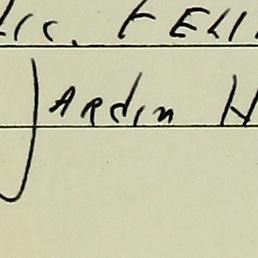 Lic. FELI
Jardin H